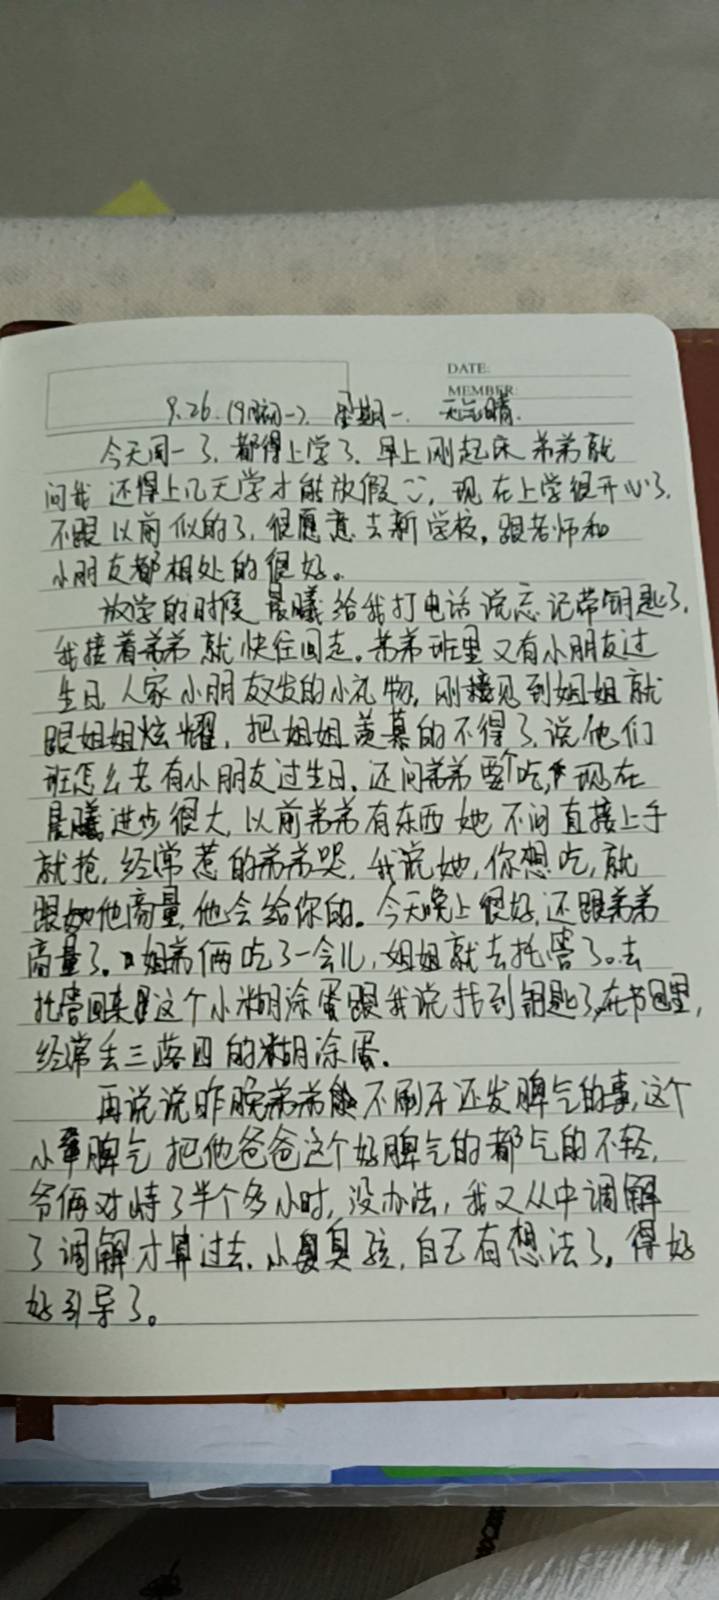 DATE:
MEMBER:
9.26.(9月初一). 星期一. 天气晴.
今天周一了, 都得上学了. 早上刚起床弟弟就
问我还得上几天学才能放假, 现在上学很开心了.
不跟以前似的了, 很愿意去新学校, 跟老师和
小朋友都相处的很好。
放学的时候晨曦给我打电话说忘记带钥匙了,
我接着弟弟就快往回走。弟弟班里又有小朋友过
生日, 人家小朋友发的小礼物, 刚接见到姐姐就
跟姐姐炫耀, 把姐姐羡慕的不得了, 说他们
班怎么老有小朋友过生日. 还问弟弟要吃, 现在
晨曦进步很大, 以前弟弟有东西她不问直接上手
就抢, 经常惹的弟弟哭, 我说她, 你想吃, 就
跟他商量, 他会给你的. 今天晚上很好, 还跟弟弟
商量了。姐弟俩吃了一会儿, 姐姐就去托管了。去
托管回来这个小糊涂蛋跟我说找到钥匙了, 在书包里,
经常丢三落四的糊涂蛋.
再说说昨晚弟弟不刷牙还发脾气的事, 这个
小脾气把他爸爸这个好脾气的都气的不轻,
爷俩对峙了半个多小时, 没办法, 我又从中调解
了调解才算过去. 小臭孩, 自己有想法了。得好
好引导了。